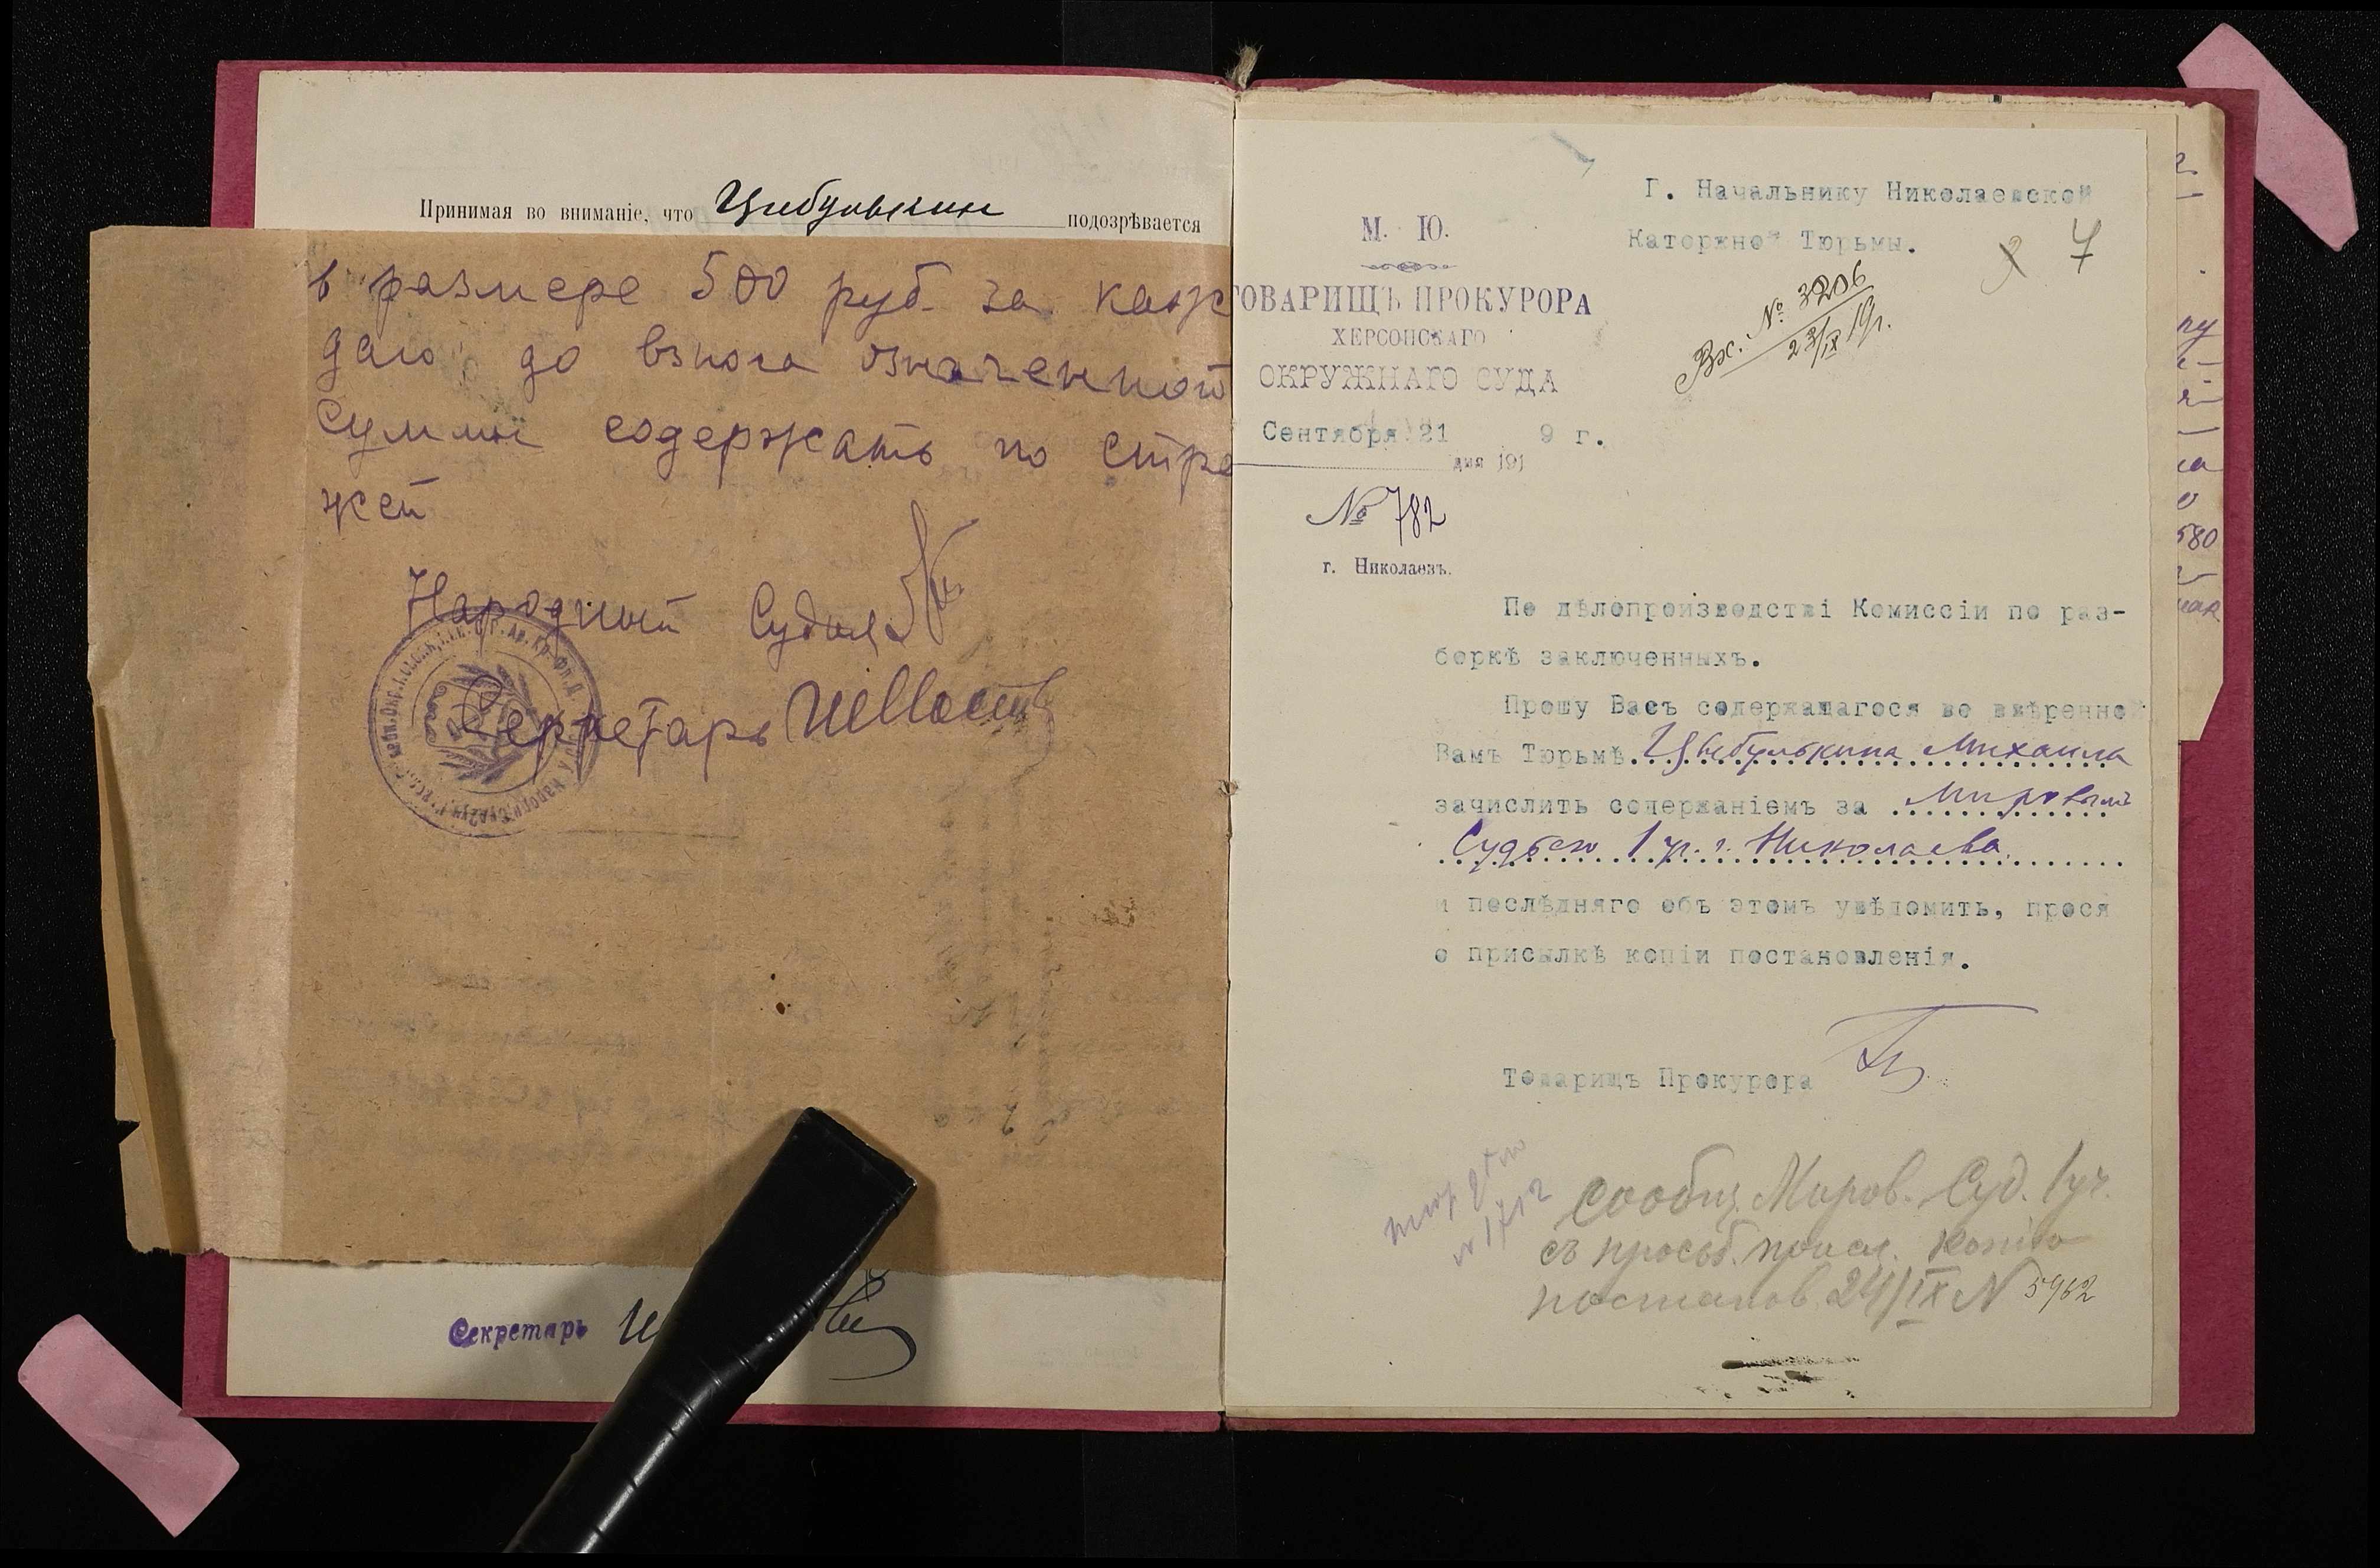 Принимая во вниманіе, что Цибулькин подозрѣвается
в размере 500 руб. за каж
даго до взноса означенной
суммы содержать по стра
жей
Народный Судья
Секретарь
Секретарь
7
Г. Начальнику Николаевской
Каторжной Тюрьмы.
Вх. № 3206
23/IX 19г.
М. Ю.
ТОВАРИЩЪ ПРОКУРОРА
ХЕРСОНСКАГО
ОКРУЖНАГО СУДА
Сентября 21 дня 1919 г.
№ 782
г. Николаевъ.
По дѣлопроизводстві Комиссіи по раз-
боркѣ заключенныхъ.
Прошу Васъ содержащагося во ввѣренной
Вамъ Тюрьмѣ Цыбулькина Михаила
зачислить содержаніемъ за Мировымъ
Судьею 1 уч. г. Николаева
и послѣдняго объ этомъ увѣдомить, прося
о присылкѣ копіи постановленія.
Товарищъ Прокурора
Сообщ. Миров. Суд. 1 уч.
съ просьб. присл. копію
постанов. 24/IX N 5962